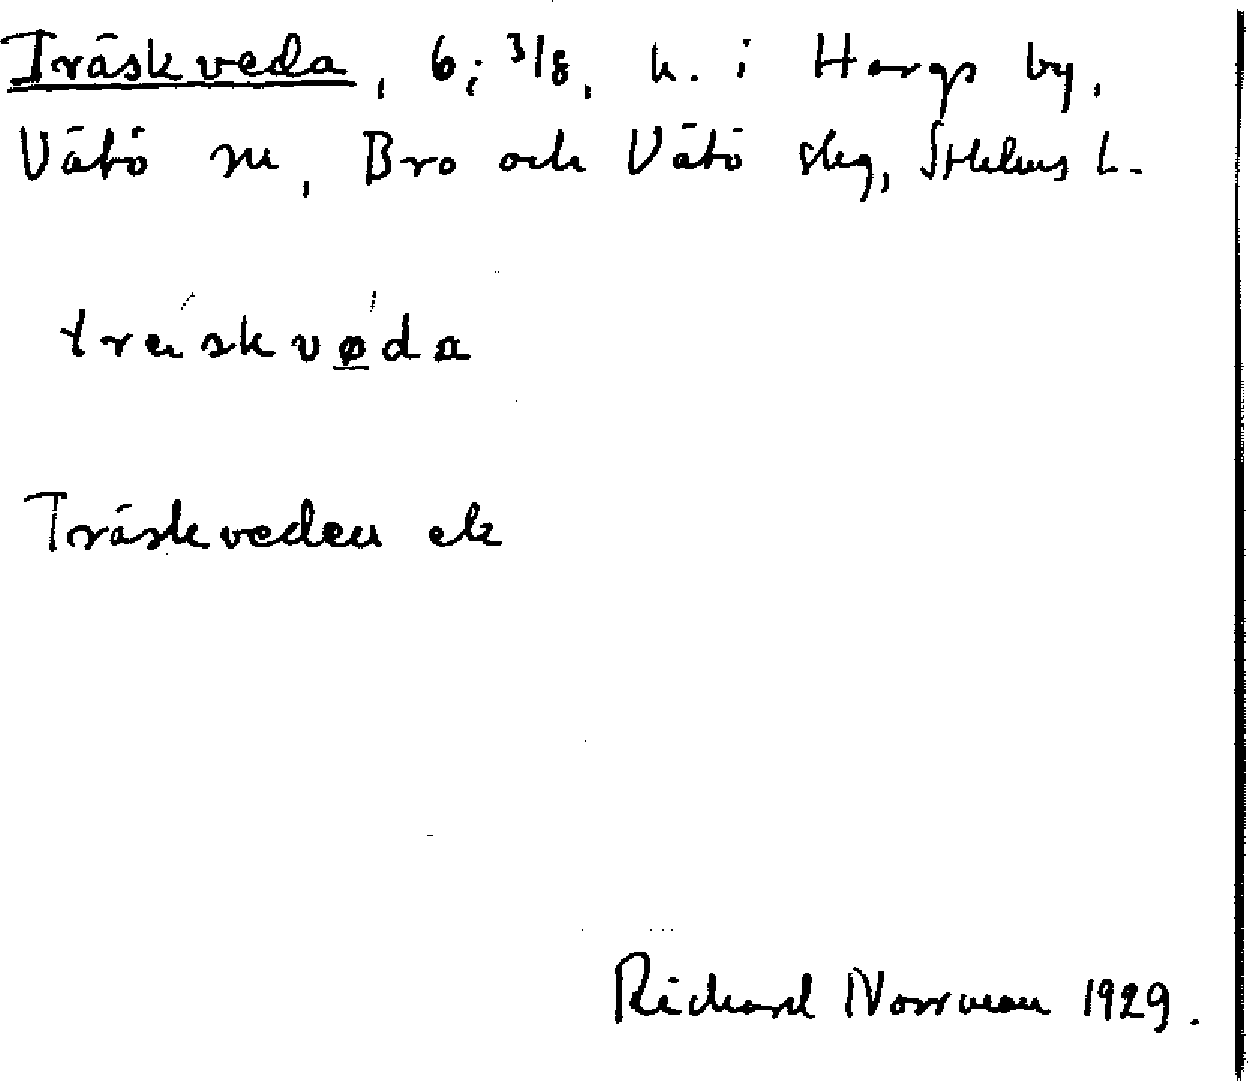 Träskveda, 6; 3/8, h. i Hargs by,
Vätö sn, Bro och Vätö skg, Sthlms l.
träskvøda
Träskveden ek
Richard Norrman 1929.